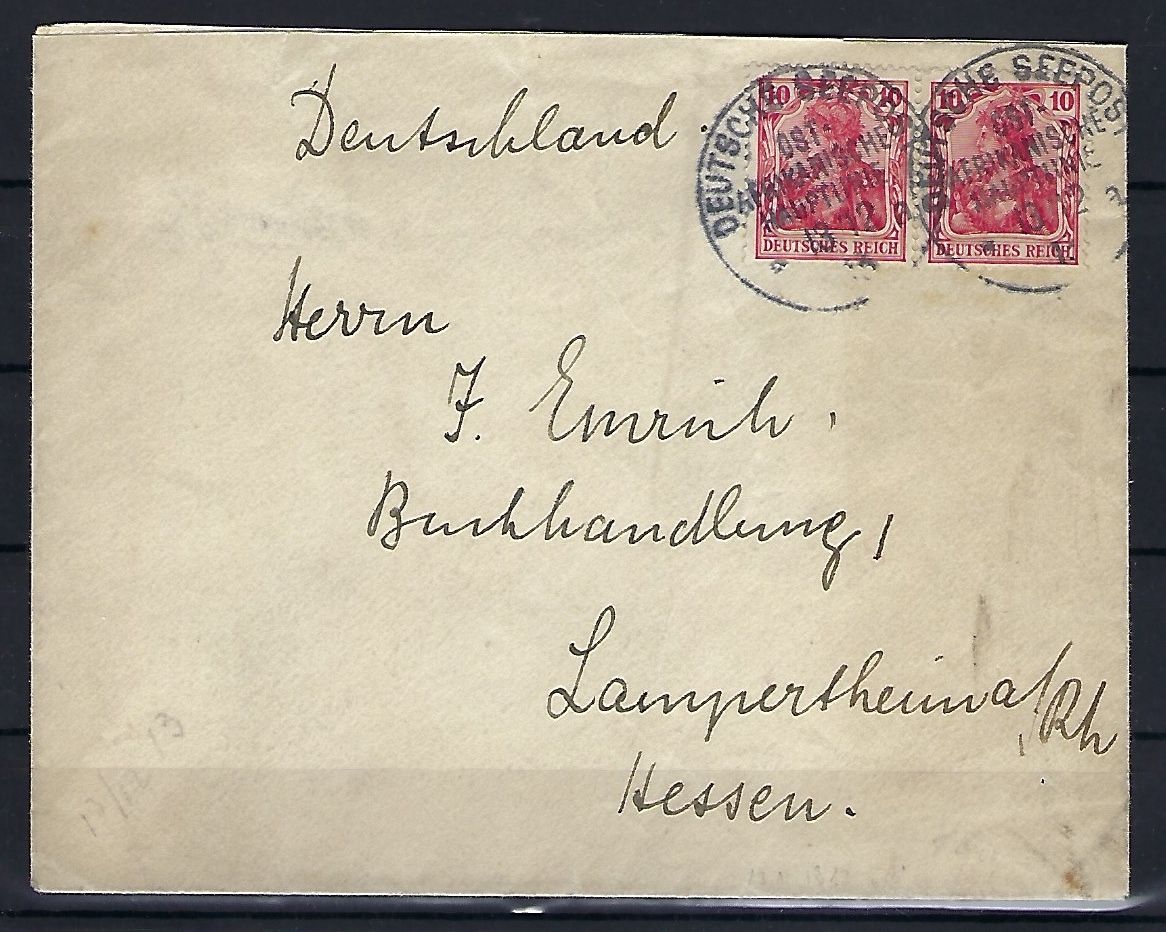 Deutschland.
10 10
10 10
DEUTSCHE SEEPOST
OST-
AFRIKANISCHE
HAUPTLINIE
DEUTSCHE SEEPOST
OST-
AFRIKANISCHE
HAUPTLINIE
DEUTSCHES REICH
DEUTSCHES REICH
Herrn
J. Emrich,
Buchhandlung,
Lampertheim a/Rh
Hessen.